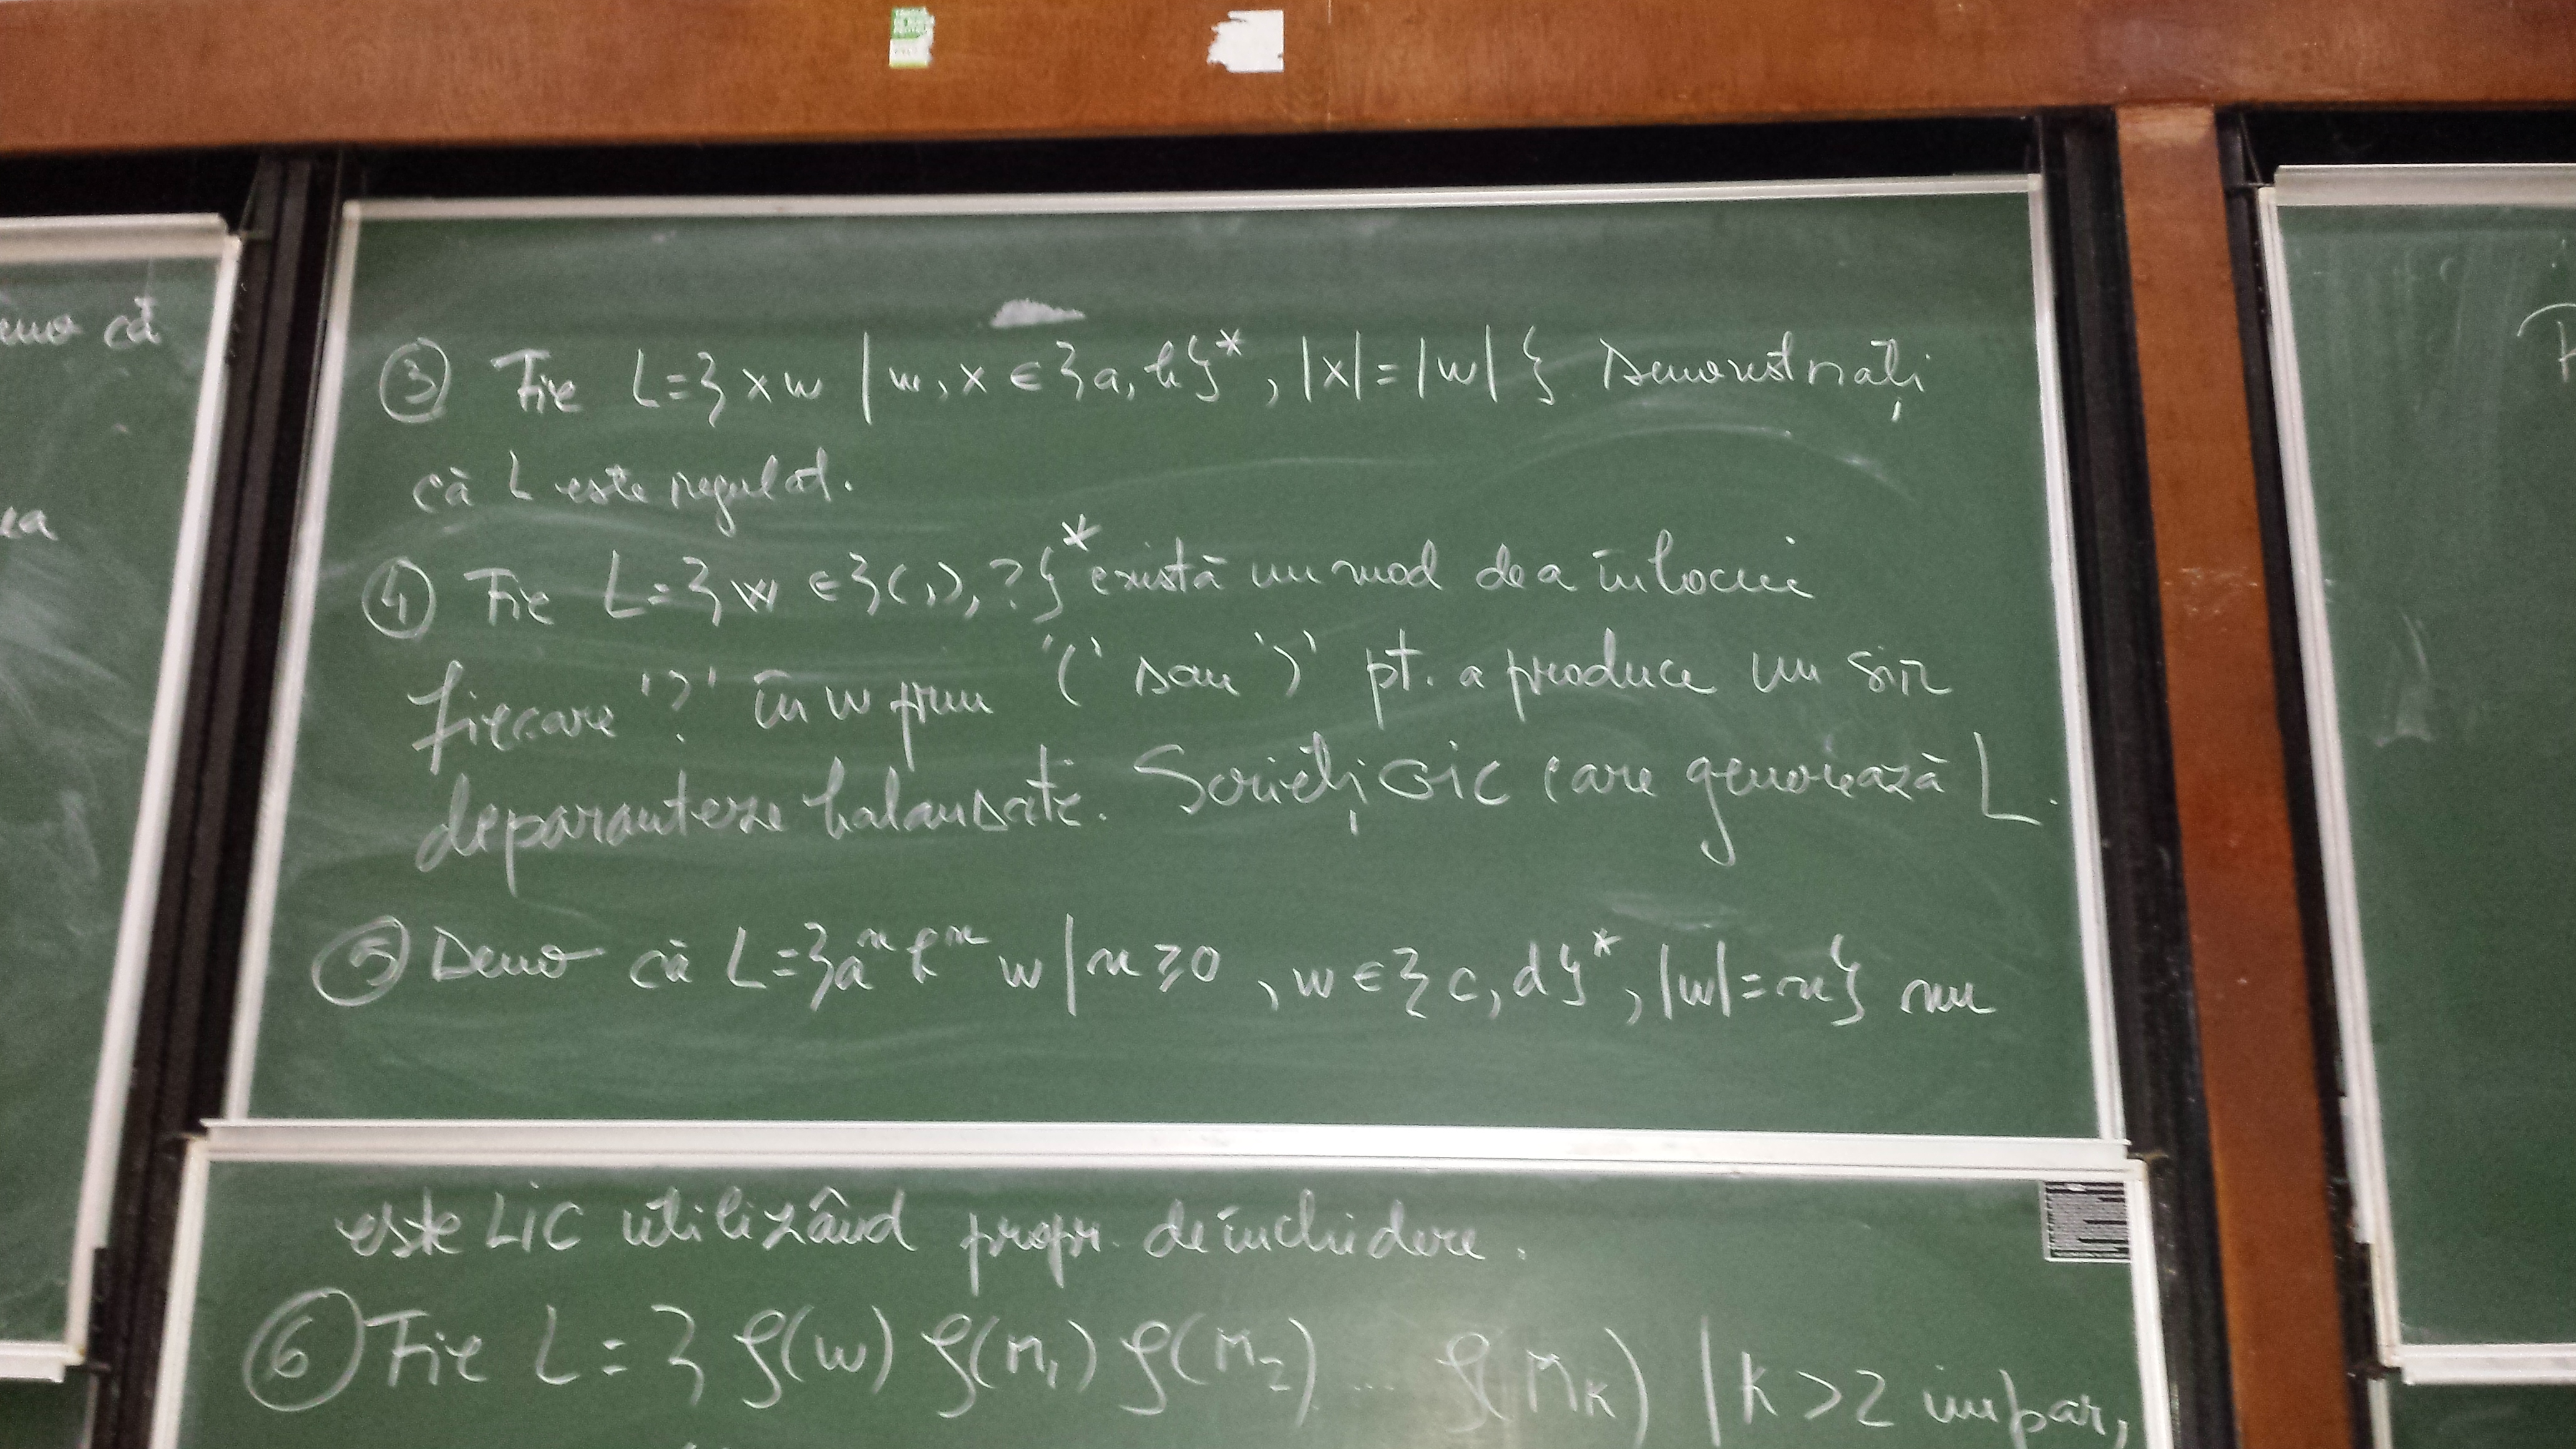 emo că
ea
③ Fie L={xw | w,x ∈ {a,b}*, |x|=|w|} Demonstrați
că L este regulat.
④ Fie L={w ∈ {(,),?}* există un mod de a înlocui
fiecare '?' în w prin '(' sau ')' pt. a produce un șir
de paranteze balansate. Scrieți GIC care generează L.
⑤ Demo că L={aⁿbⁿw | n⩾0, w∈{c,d}*, |w|=n} nu
este LIC utilizând propr. de închidere.
⑥ Fie L={ρ(w) ρ(M₁) ρ(M₂) ... ρ(Mₖ) | k>2 impar,